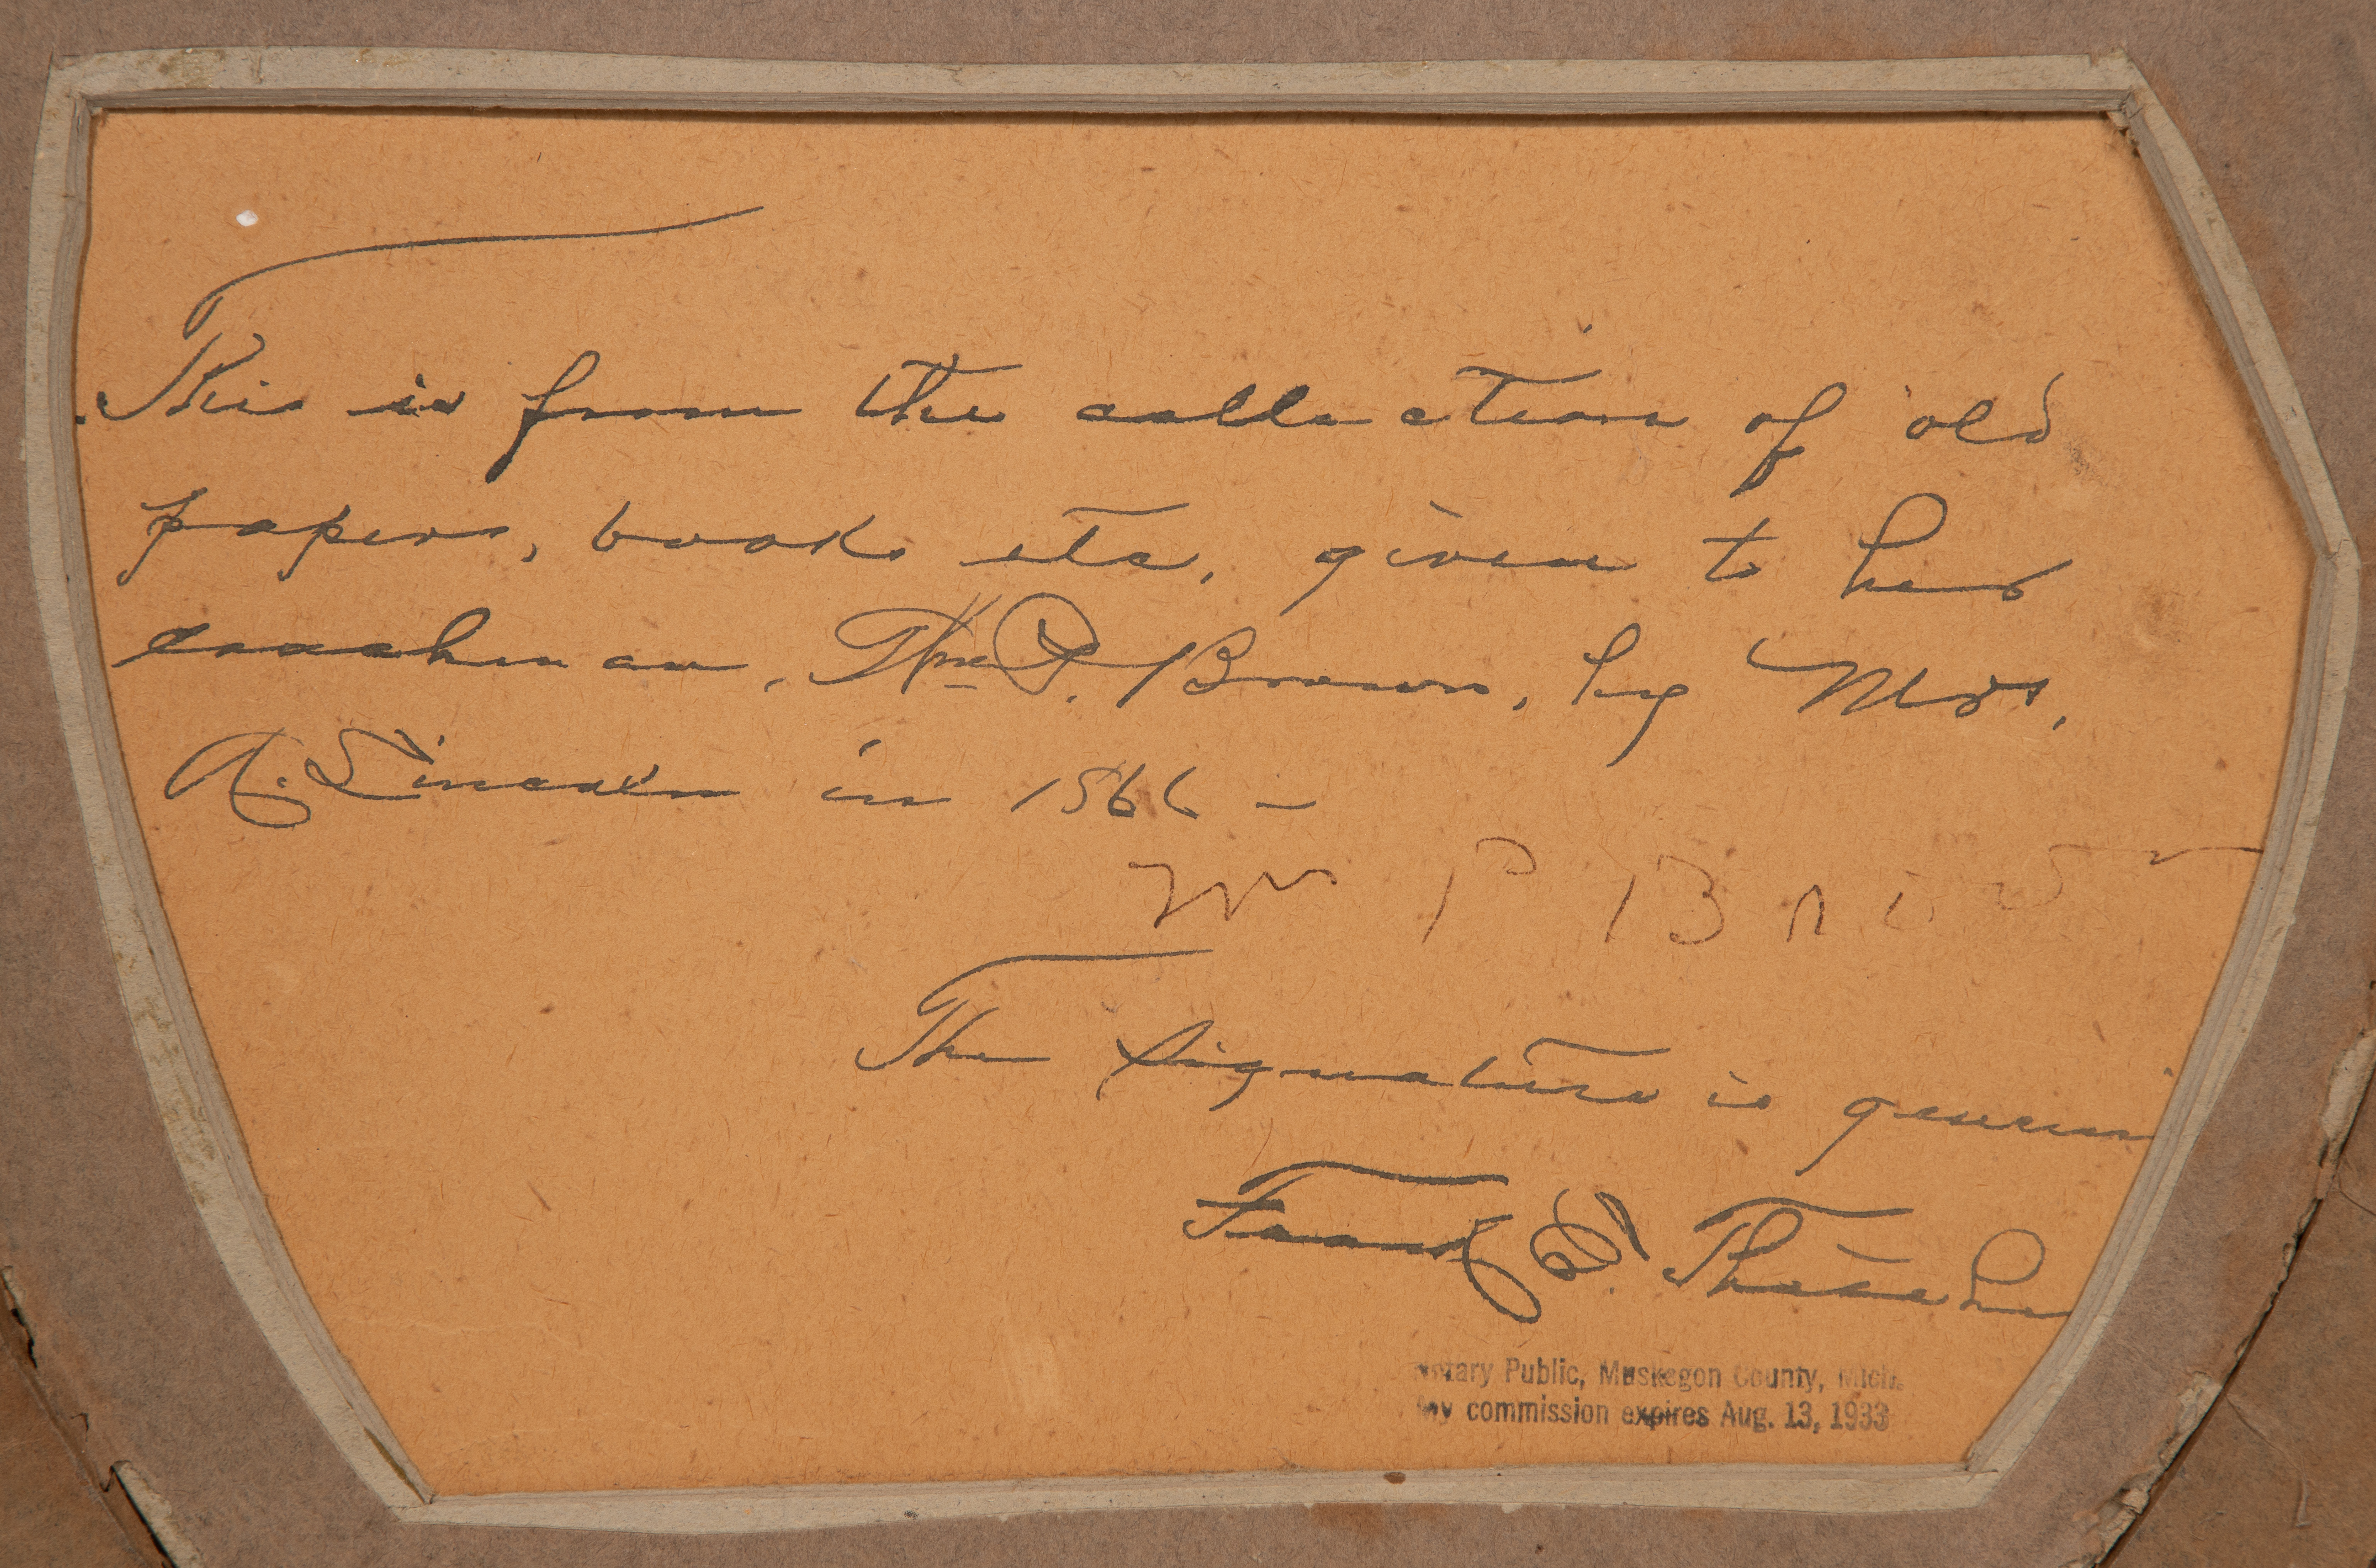 This is from the collection of old
papers, books etc, given to her
coachman, Wm P. Brown, by Mrs.
A. Lincoln in 1866 –
Wm P Brow
The signature is genuin
Frank E. Thatche
Notary Public, Muskegon County, Mich.
My commission expires Aug. 13, 1933